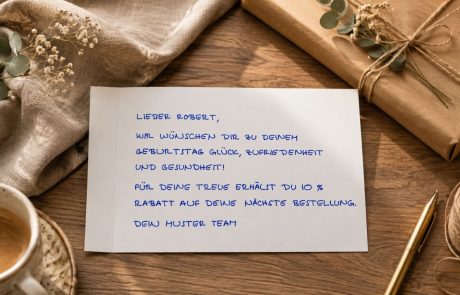 LIEBER ROBERT,
WIR WÜNSCHEN DIR ZU DEINEM
GEBURTSTAG GLÜCK, ZUFRIEDENHEIT
UND GESUNDHEIT!
FÜR DEINE TREUE ERHÄLST DU 10 %
RABATT AUF DEINE NÄCHSTE BESTELLUNG.
DEIN MUSTER TEAM